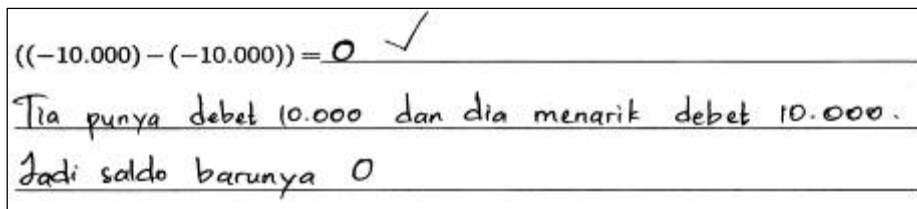 ((−10.000) − (−10.000)) = 0 ✓
Tia punya debet 10.000 dan dia menarik debet 10.000.
Jadi saldo barunya 0